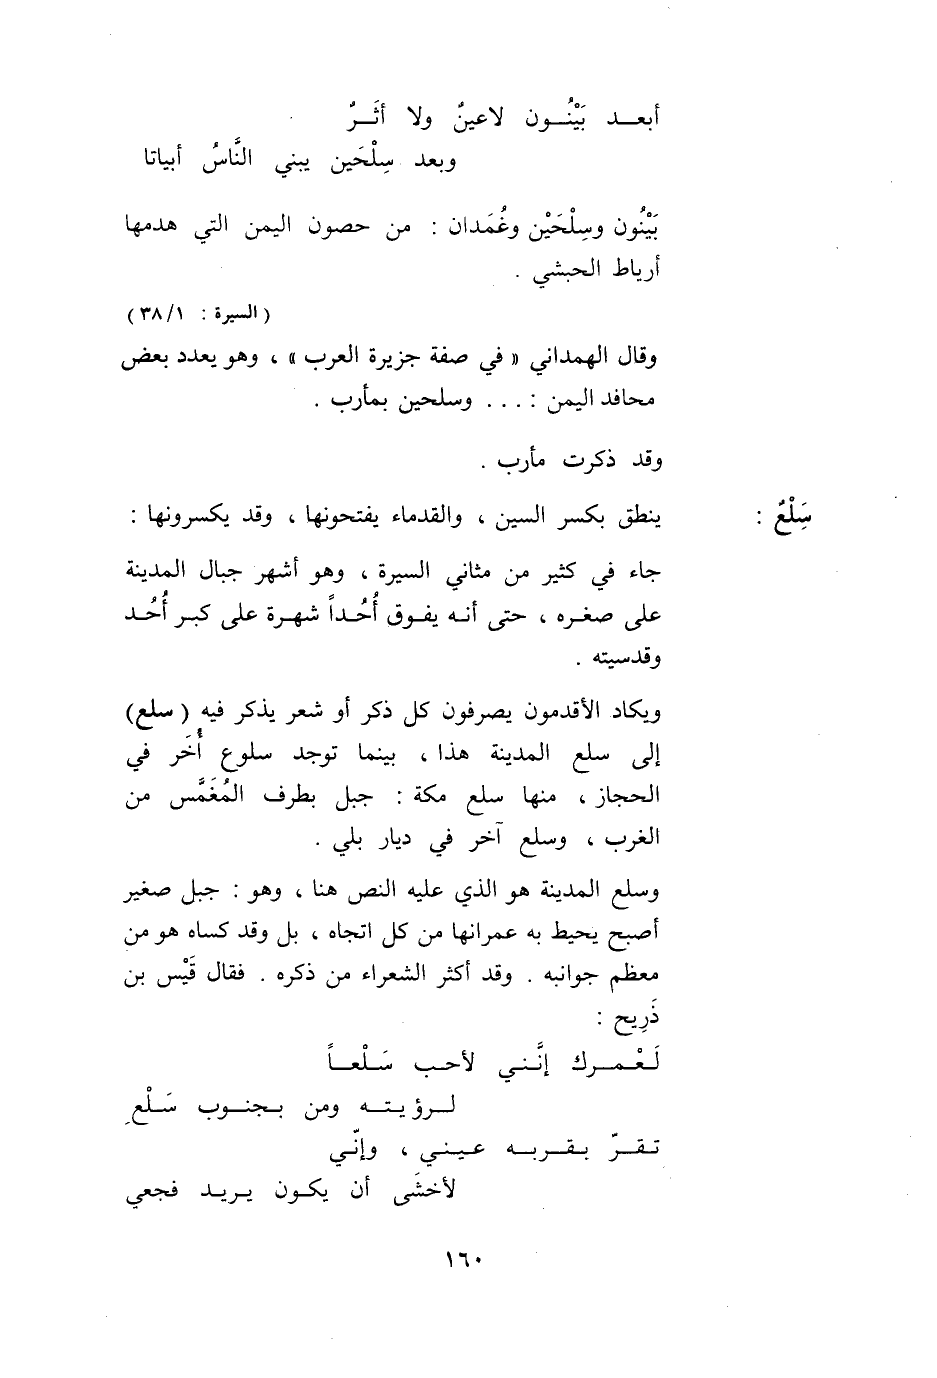 أبعــد بَيْنُــون لاعينٌ ولا أثَــرٌ
وبعد سِلْحَين يبني النَّاسُ أبياتا
بَيْنُون وسِلْحَيْن وغُمَدان : من حصون اليمن التي هدمها
أرياط الحبشي .
( السيرة : ٣٨/١ )
وقال الهمداني « في صفة جزيرة العرب » ، وهو يعدد بعض
محافد اليمن : . . . وسلحين بمأرب .
وقد ذكرت مأرب .
سَِلْعٌ : ينطق بكسر السين ، والقدماء يفتحونها ، وقد يكسرونها :
جاء في كثير من مثاني السيرة ، وهو أشهر جبال المدينة
على صغـره ، حتى أنـه يفـوق أُحُـداً شهـرة على كبـر أُحُـد
وقدسيته .
ويكاد الأقدمون يصرفون كل ذكر أو شعر يذكر فيه ( سلع )
إلى سلع المدينة هذا ، بينما توجد سلوع أُخَر في
الحجاز ، منها سلع مكة : جبل بطرف المُغَمَّس من
الغرب ، وسلع آخر في ديار بلي .
وسلع المدينة هو الذي عليه النص هنا ، وهو : جبل صغير
أصبح يحيط به عمرانها من كل اتجاه ، بل وقد كساه هو من
معظم جوانبه . وقد أكثر الشعراء من ذكره . فقال قَيْس بن
ذَرِيح :
لَـعْـمــرك إنَّـنـي لأحـب سَـلْعــاً
لــرؤيـتــه ومن بـجنــوب سَـلْعِ
تـقــرّ بـقــربــه عـيـني ، وإنّي
لأخشَى أن يكـون يـريـد فجعي
١٦٠